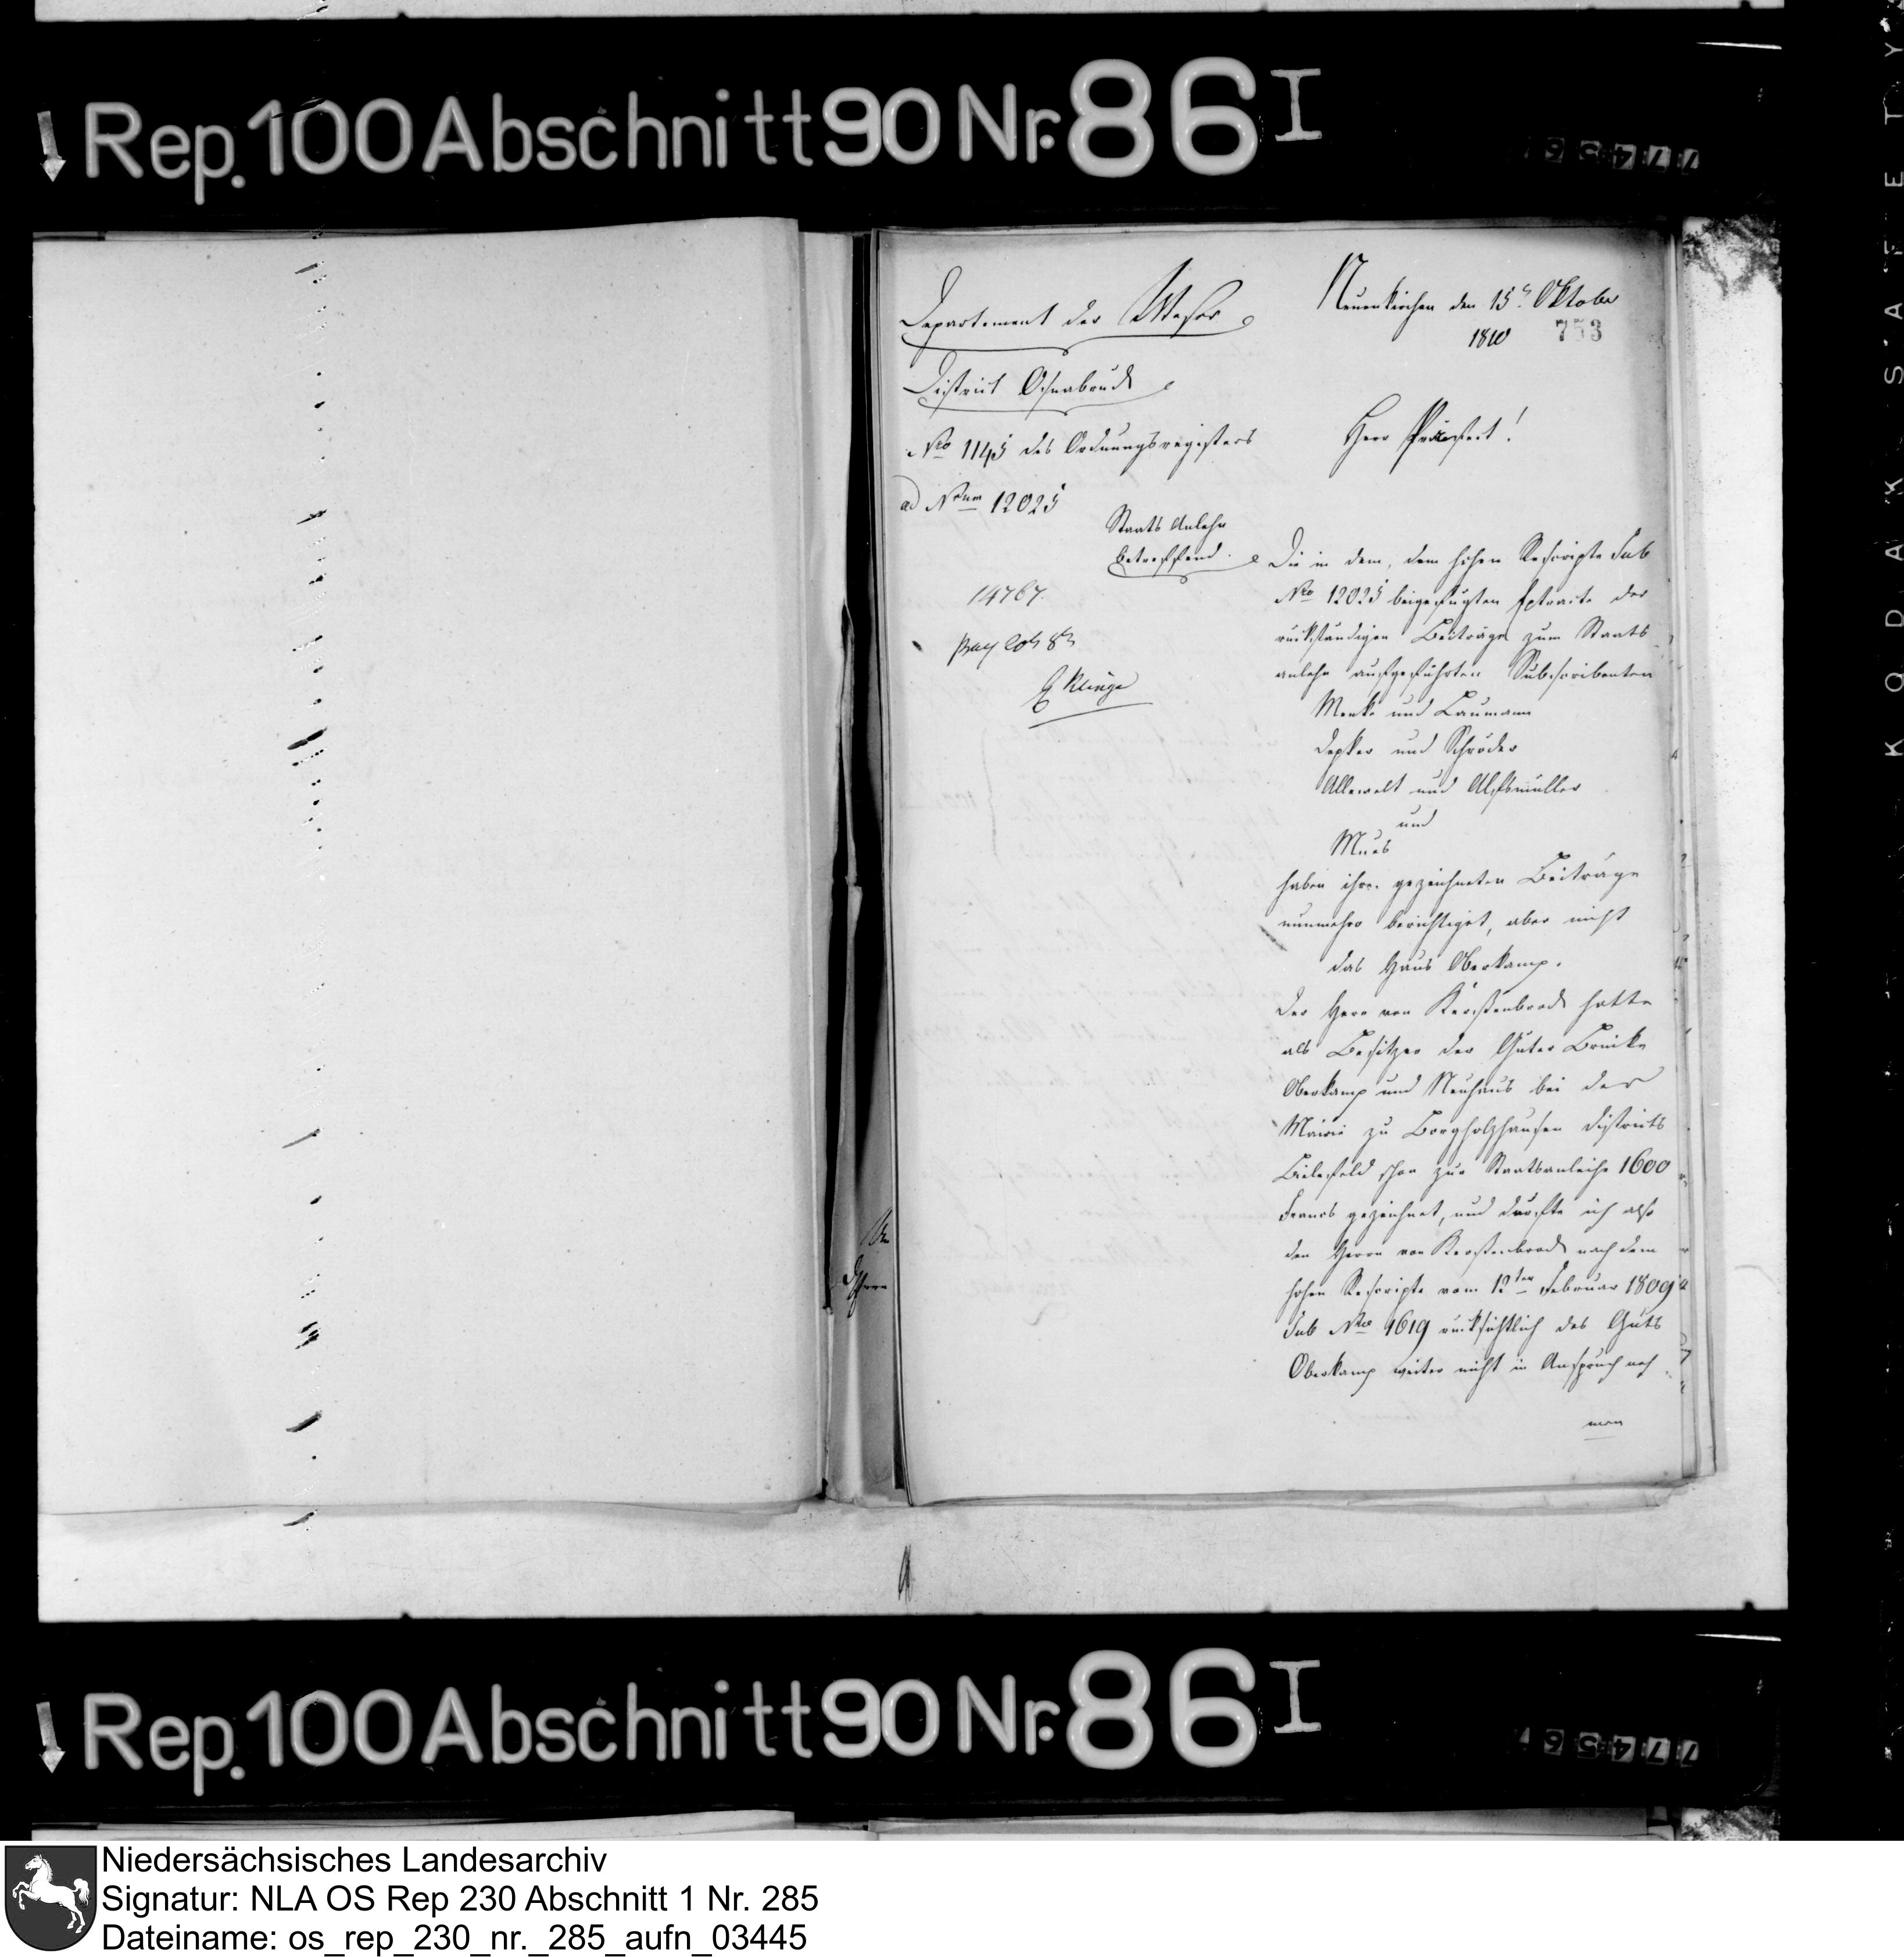 Rep. 100 Abschnitt 90 Nr. 86 I
Departement der Weser
District Osnabrück
Nro 1145 des Ordnungsregisters
ad Nrum 12025
Staats Anlehn
betreffend.
14767.
Neuenkirchen den 15n Oktober
1810
753
Herr Präfect!
Die in dem, dem hohen Rescripte sub
Nro 12025 beigefügten Extracte der
rückständigen Beiträge zum Staats
anlehn aufgeführten Subscribenten
Menke und Laumann
Depker und Schröder
Allewelt und Alfsmüller
und
Mues
haben ihre gezeichneten Beiträge
nunmehro berichtiget, aber nicht
das Haus Oberkamp.
Der Herr von Kerssenbrock hatte
als Besitzer der Güter Brincke
Oberkamp und Neuhaus bei der
Mairie zu Borgholzhausen Districts
Bielefeld schon zur Staatsanleihe 1600
Francs gezeichnet, und durfte ich also
den Herrn von Kerssenbrock nach dem
hohen Rescripte vom 12ten Februar 1809
sub Nro 1619 rücksichtlich des Guts
Oberkamp weiter nicht in Anspruch neh
men
Rep. 100 Abschnitt 90 Nr. 86 I
Niedersächsisches Landesarchiv
Signatur: NLA OS Rep 230 Abschnitt 1 Nr. 285
Dateiname: os_rep_230_nr._285_aufn_03445